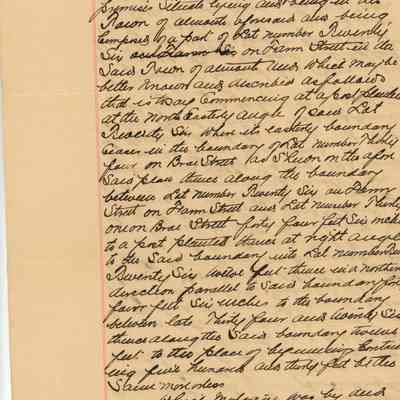 premises situate lying and being in the
Town of Almonte aforesaid and being
Composed of a part of Lot number Twenty
Six on Farm Street in the
Said Town of Almonte and which may be
better known and described as follows
that is to say Commencing at a post planted
at the North Easterly Angle of said Lot
Twenty Six where its easterly boundary
in the boundary of Lot number Thirty
four on Brae Street as shown on the afore
Said plan thence along the boundary
between Lot number Twenty Six on Farm
Street on Farm Street and Lot number Thirty
on Brae Street forty four feet Six inches
to a post planted thence at right angles
to the said boundary into Lot number
Twenty Six twelve feet thence in a northerly
direction parallel to said boundary forty
four feet Six inches to the boundary
between lots Thirty four and twenty Six
thence along the said boundary twelve
feet to the place of beginning Contain
ing five hundred and thirty feet be the
Same more or less
was by deed